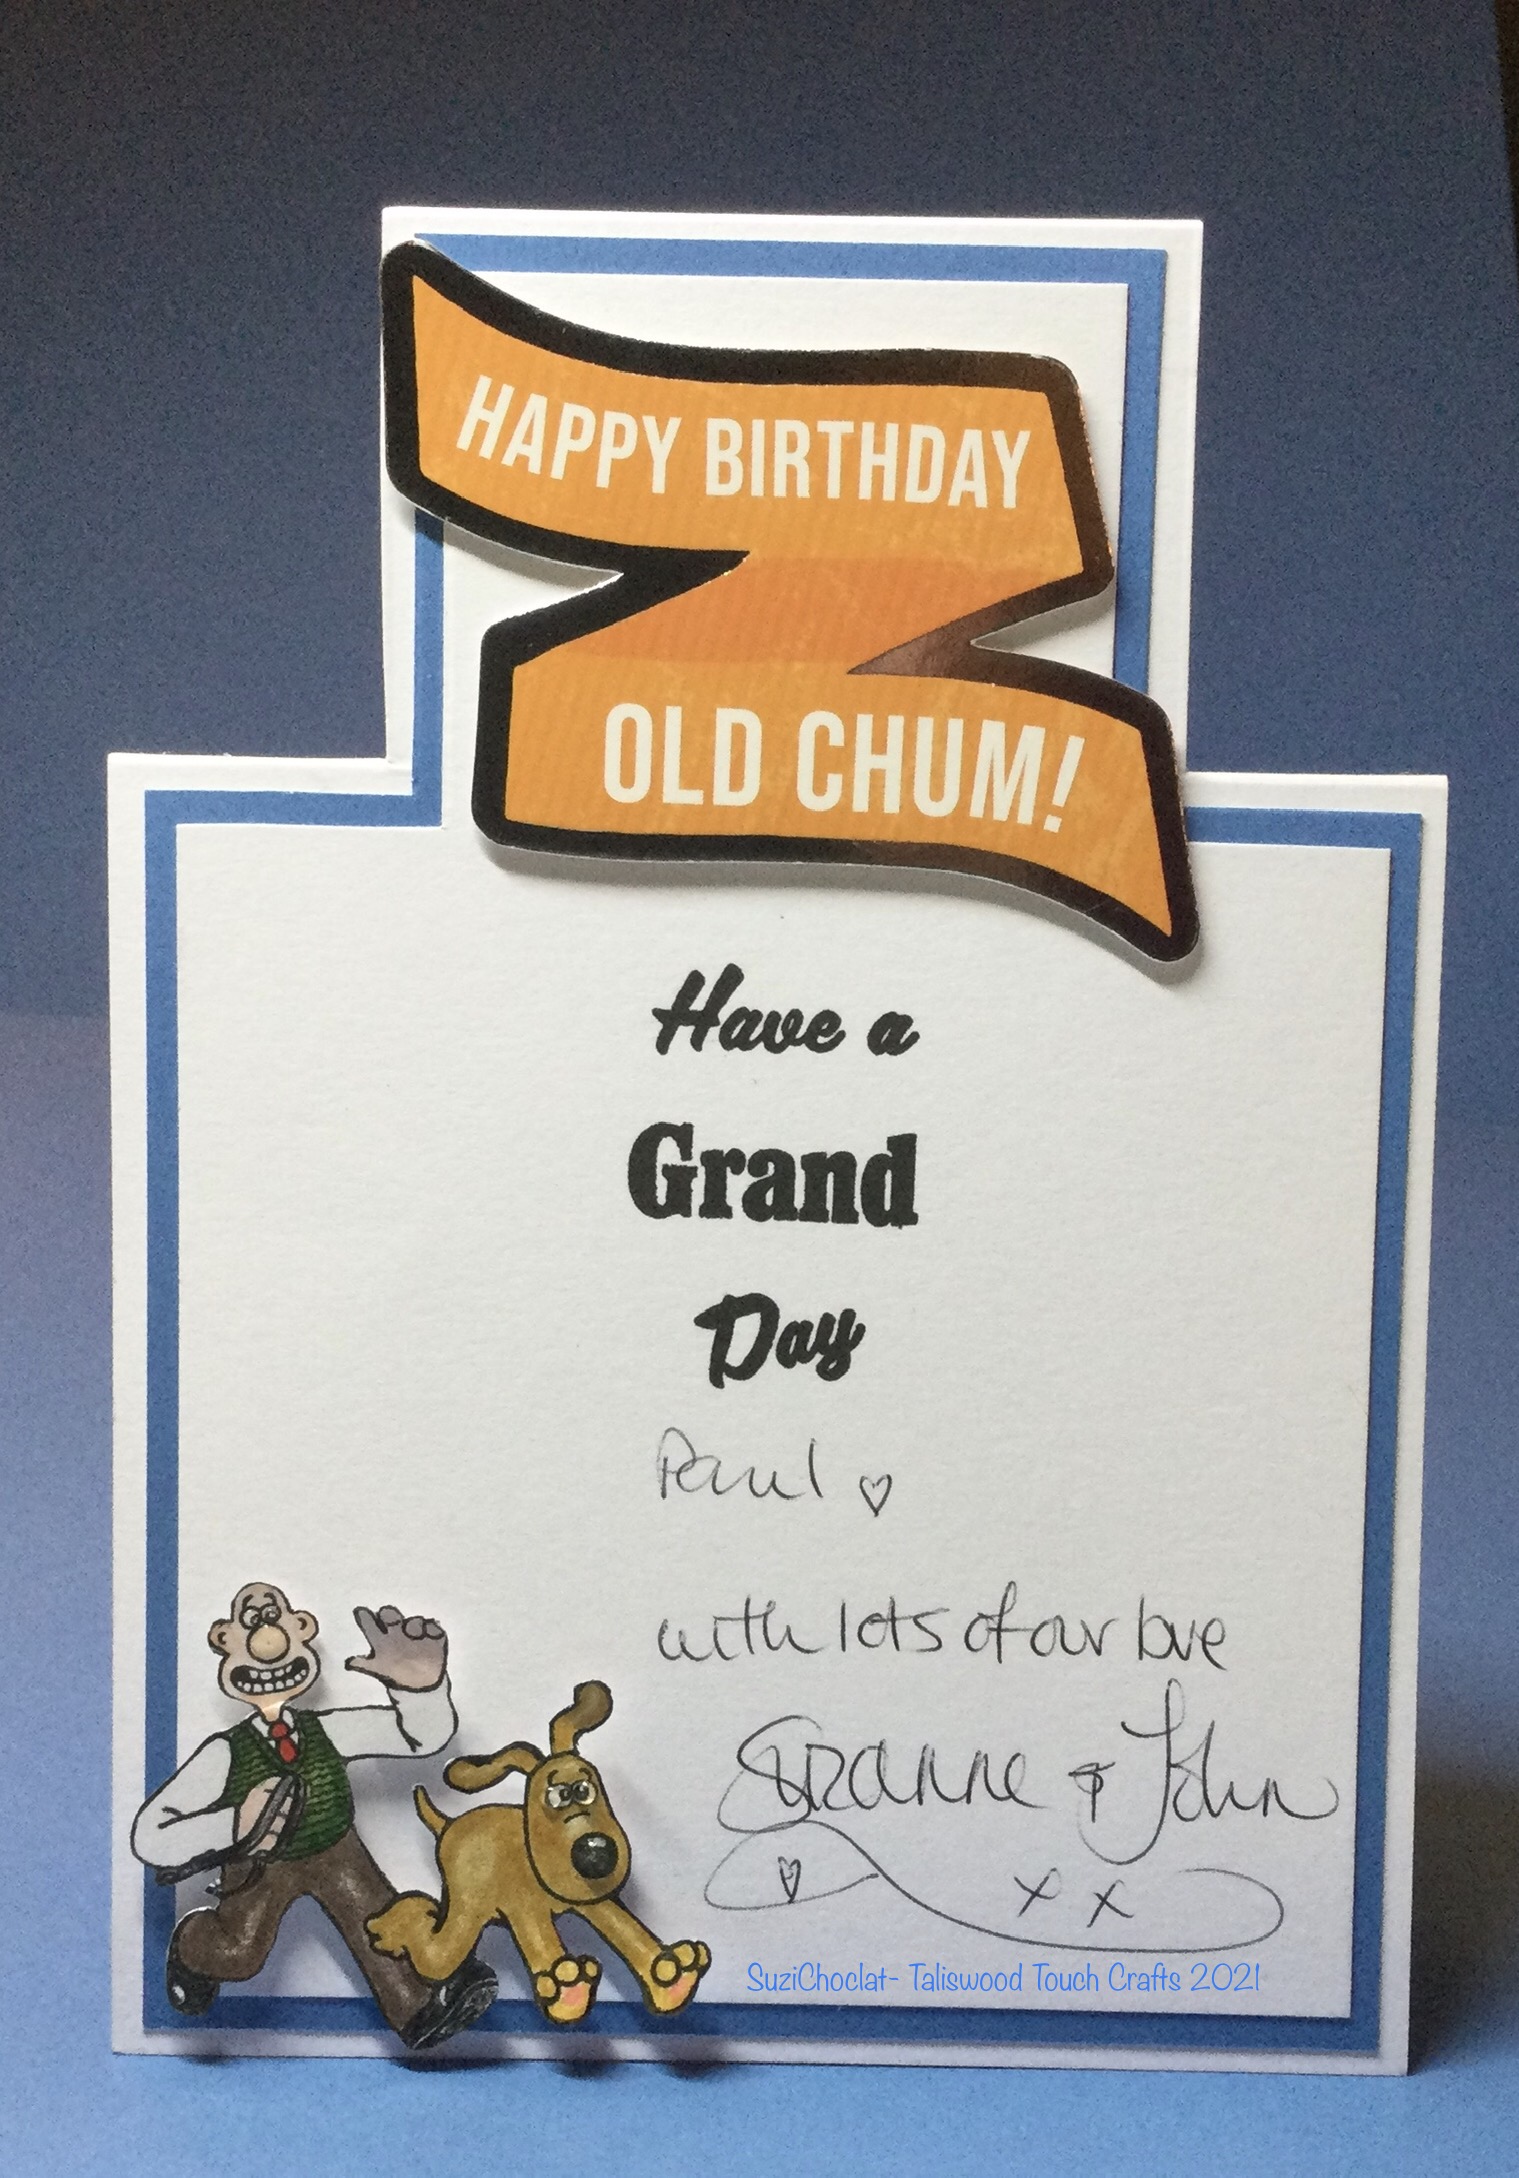 HAPPY BIRTHDAY
OLD CHUM!
Have a
Grand
Day
Paul ♡
with lots of our love
Suzanne & John
x x
SuziChoclat- Taliswood Touch Crafts 2021